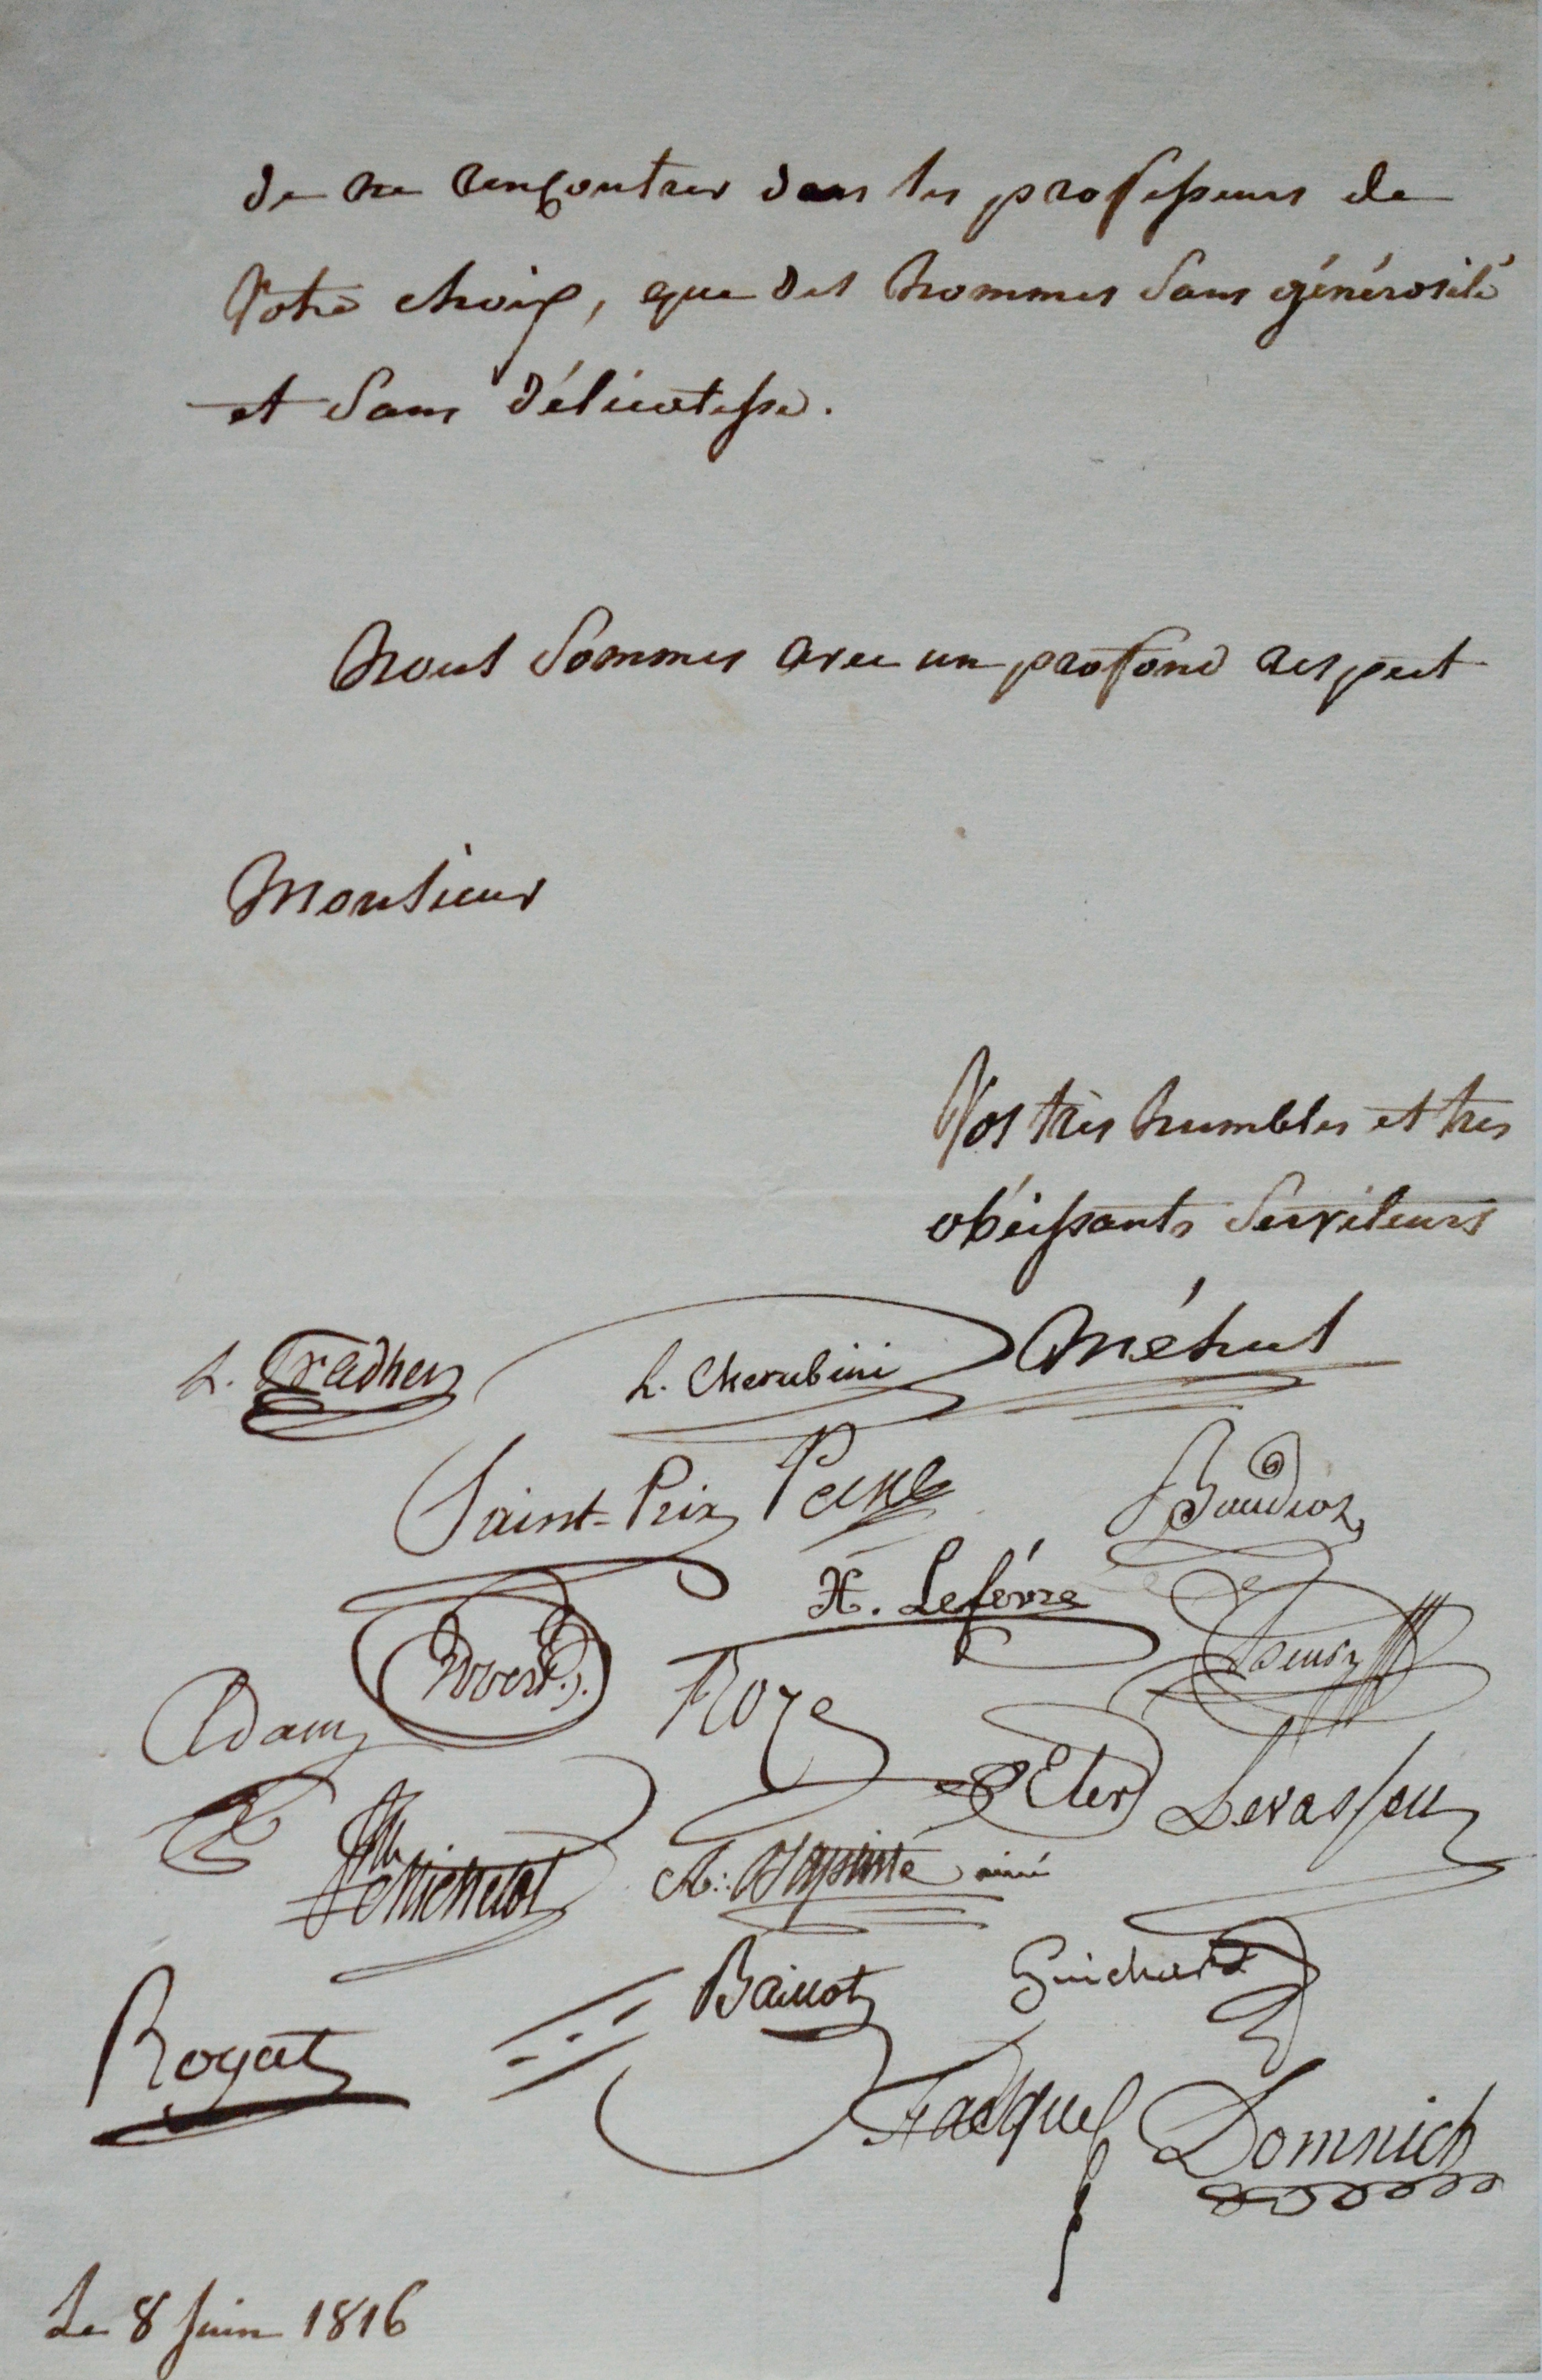 de ne rencontrer dans les professeurs de
Votre choix, que des hommes sans générosité
et sans délicatesse.
Nous sommes avec un profond respect
Monsieur
Vos très humbles et tres
obéissants serviteurs
L. Pradher
L. Cherubini
Méhul
Saint-Prix
Baudiot
X. Lefévre
Adam
Roze
Eler
Levasseur
Michelot
A: Baptiste ainé
Baillot
Guichard
Rogat
Domnich
Le 8 Juin 1816